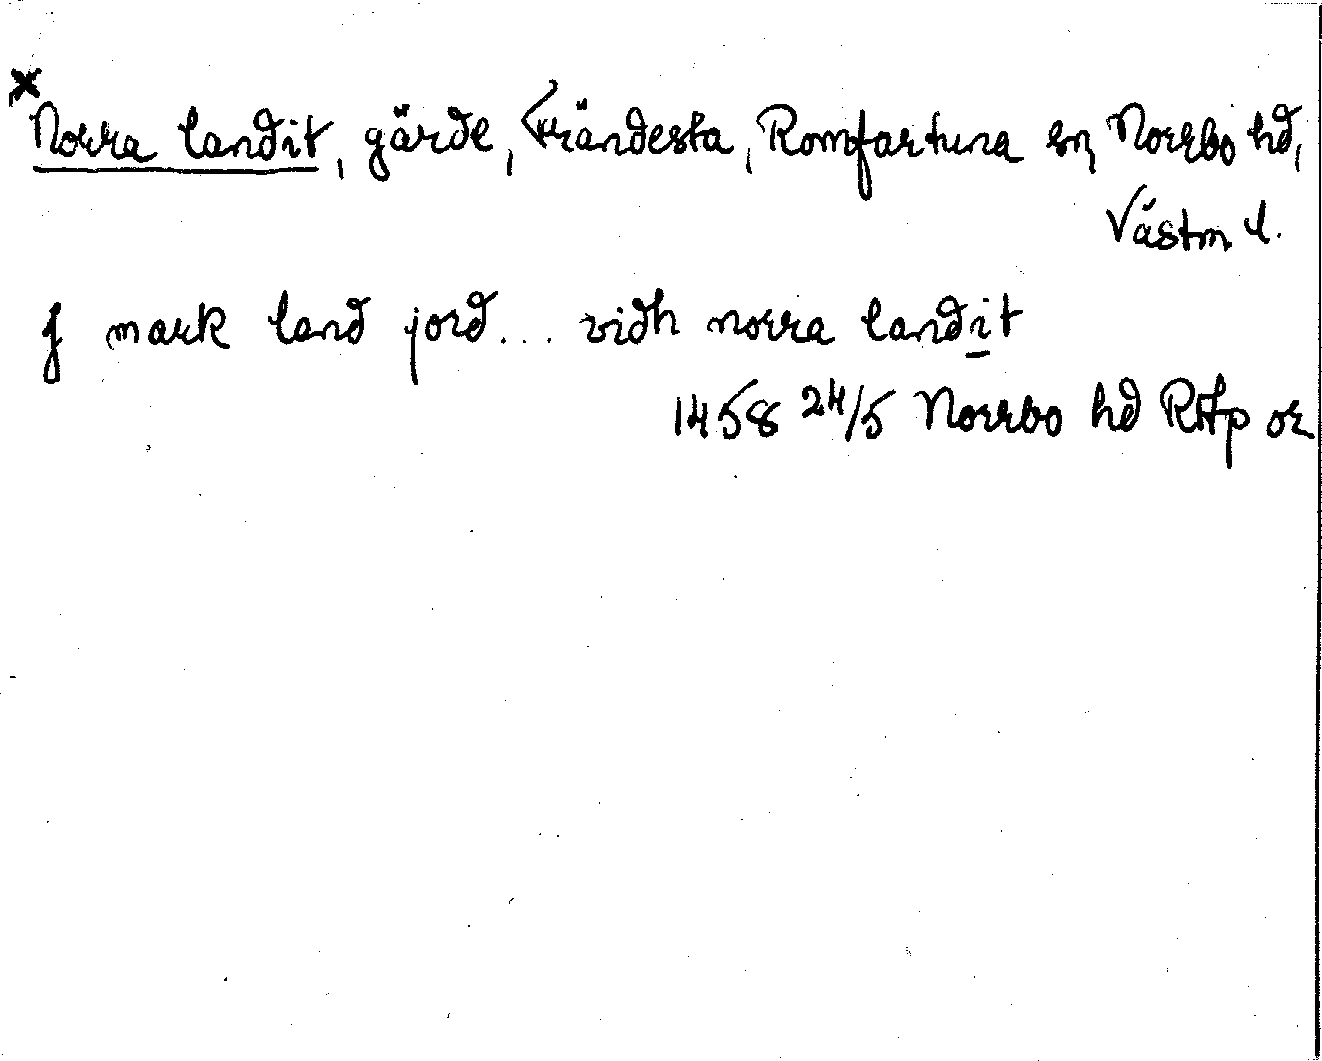 × Norra landit, gärde, Frändesta, Romfartuna sn, Norrbo hd,
Västm. l.
J mark land jord... vidh norra landit
1458 24/5 Norrbo hd RAp or